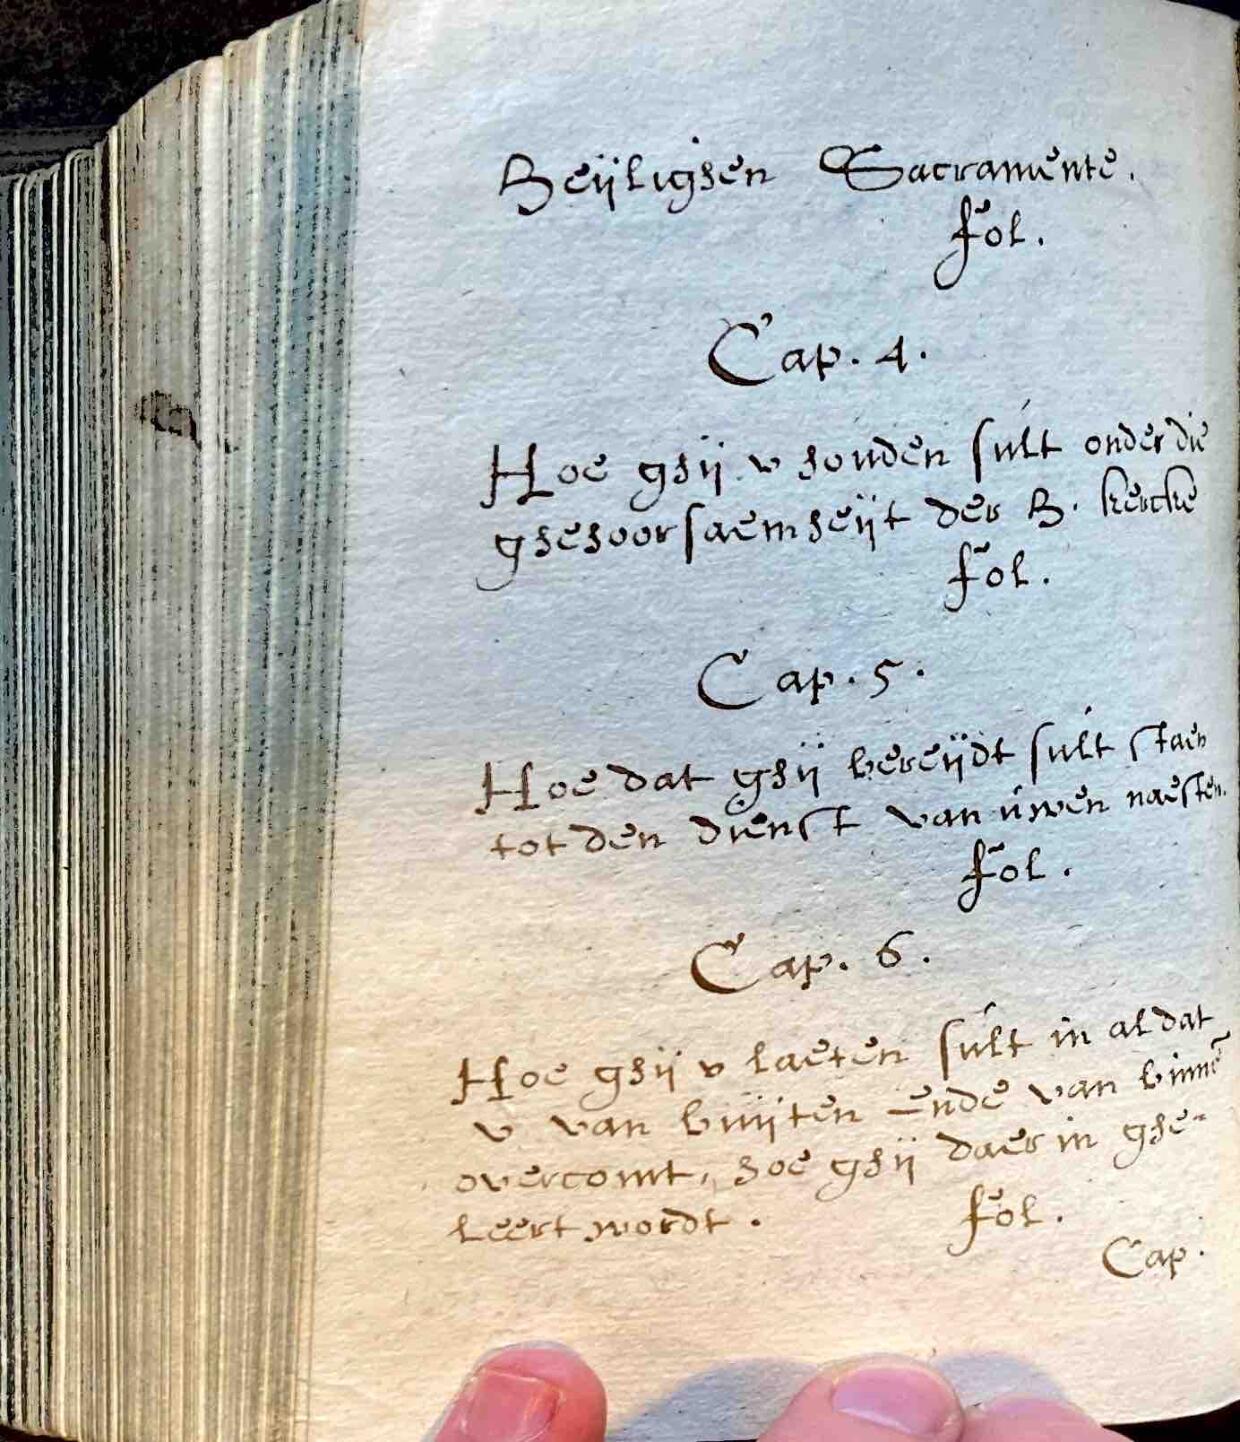 Heijlighen Sacramente.
fol.
Cap. 4.
Hoe ghij v houden sult onder die
ghehoorsaemheijt der H. kercke
fol.
Cap. 5.
Hoe dat ghij bereijdt sult staen
tot den dienst van uwen naesten.
fol.
Cap. 6.
Hoe ghij v laeten sult in al dat
v van buijten ende van binnē
overcomt, hoe ghij daer in ghe-
leert wordt. fol.
Cap.